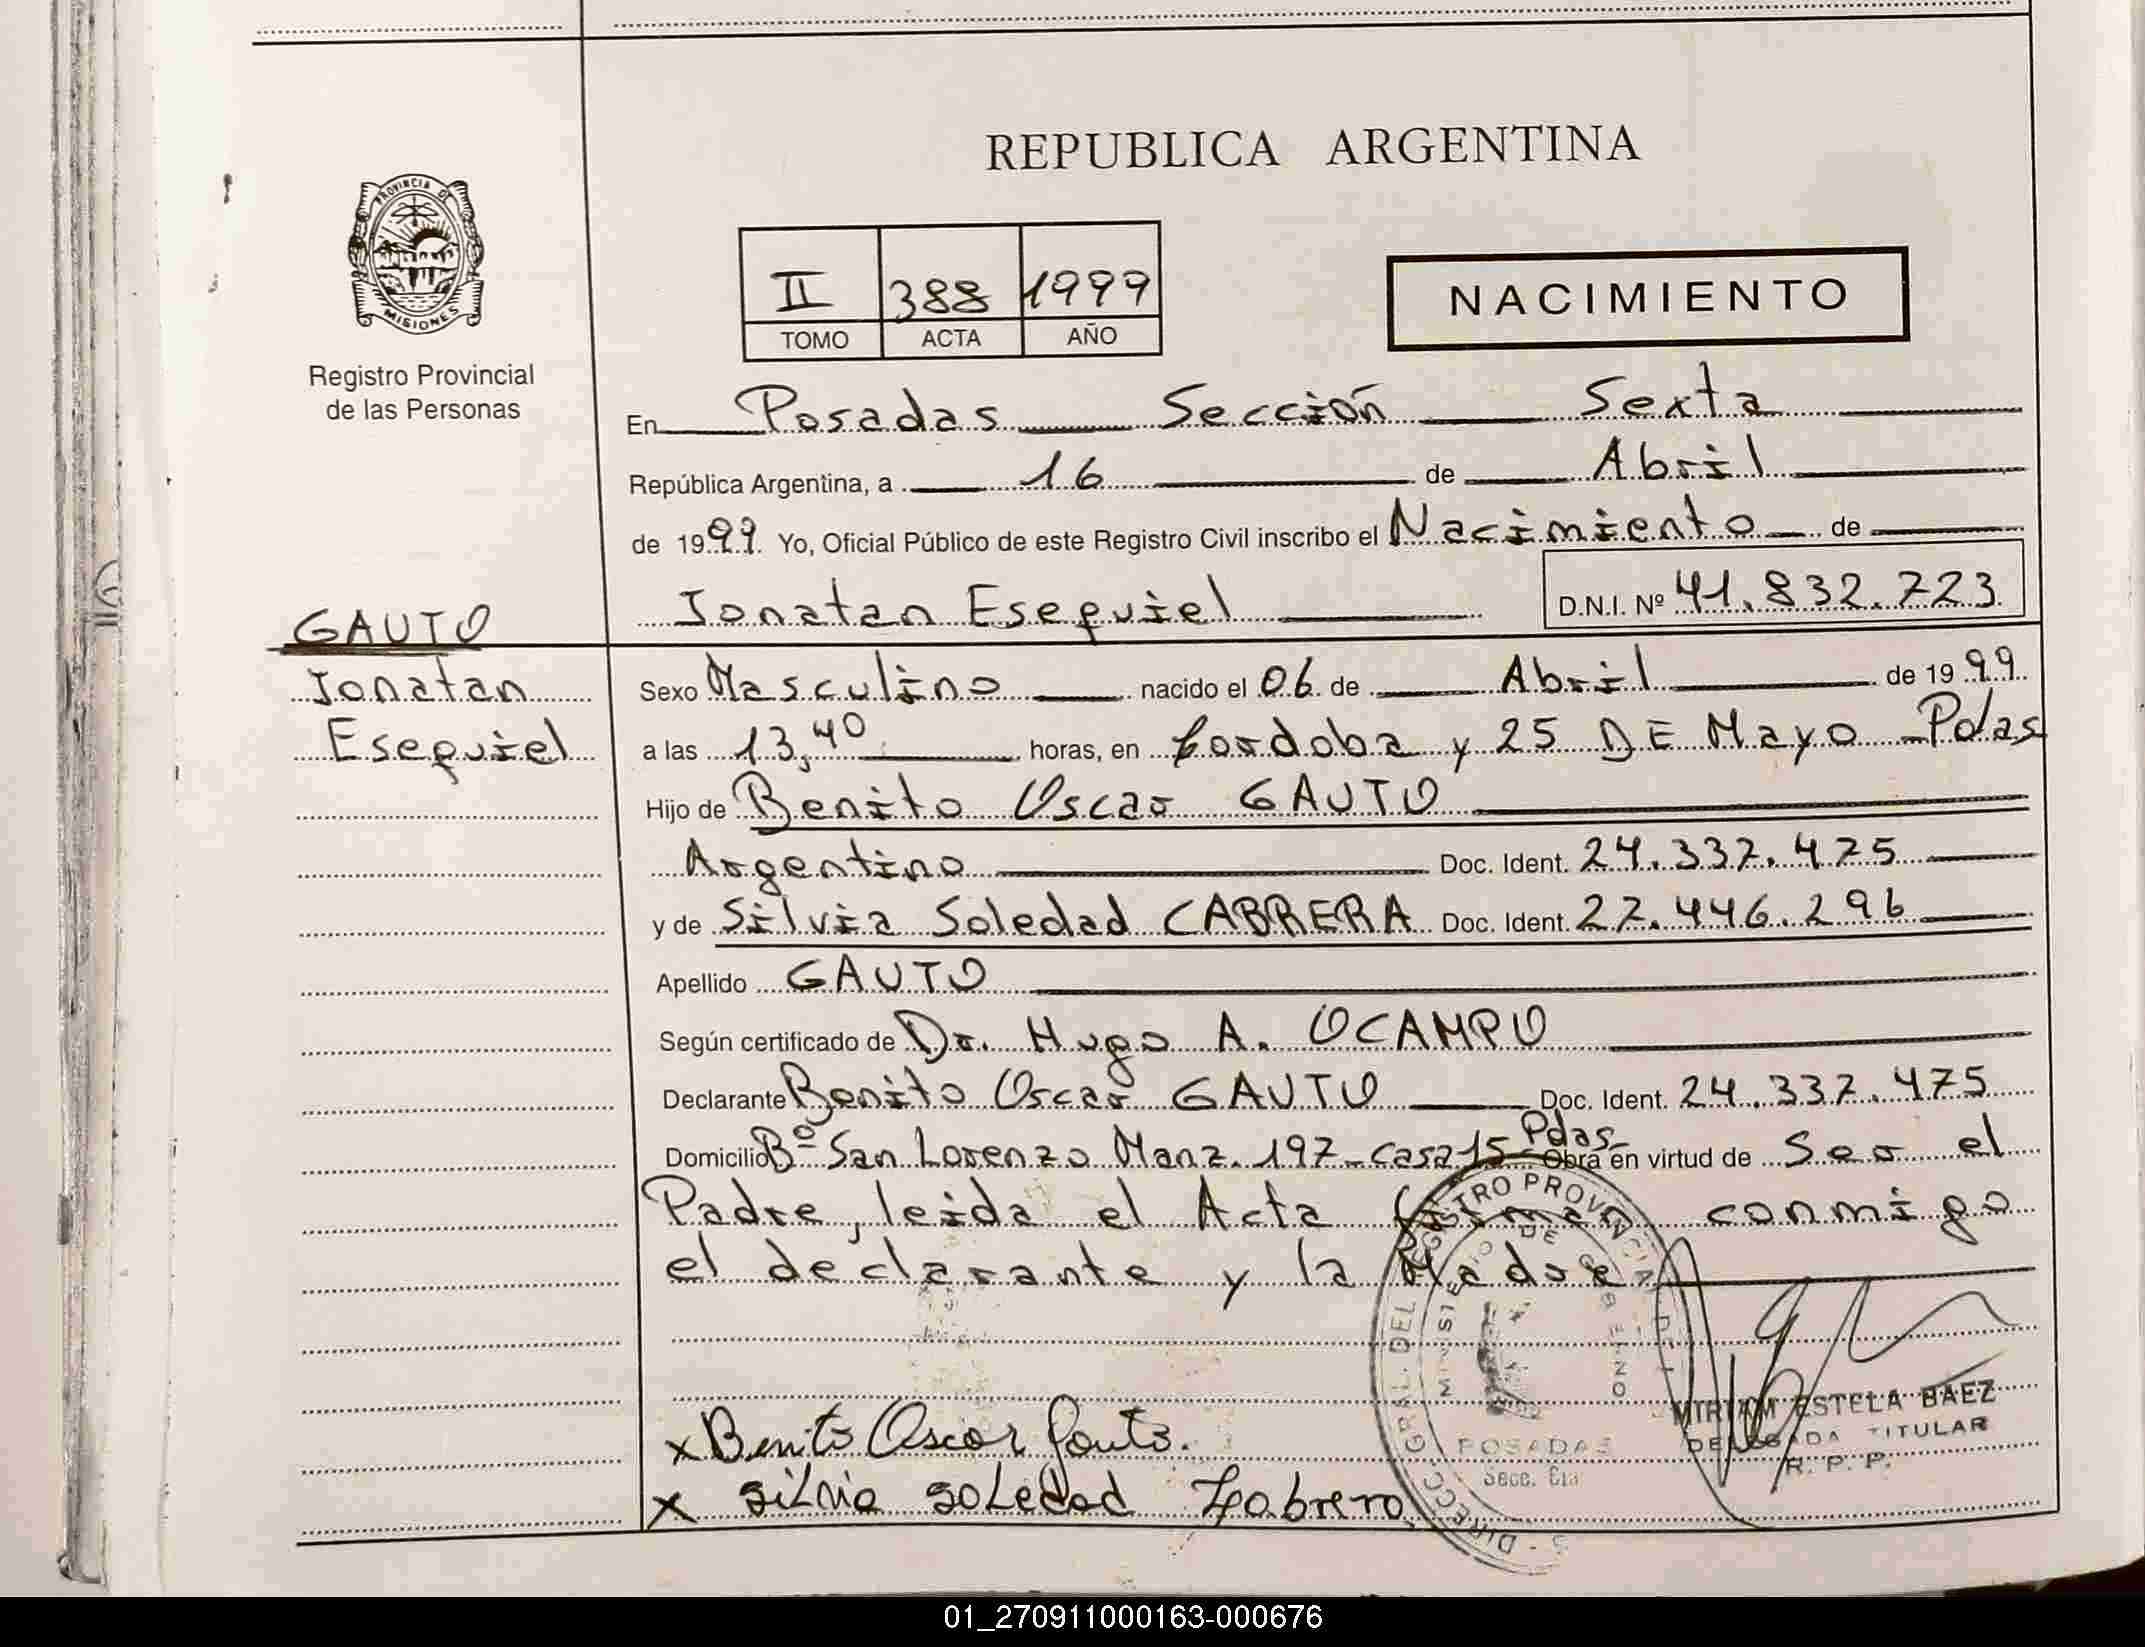 REPUBLICA ARGENTINA
PROVINCIA DE
MISIONES
Registro Provincial
de las Personas
II 388 1999
TOMO ACTA AÑO
NACIMIENTO
En Posadas Sección Sexta
República Argentina, a 16 de Abril
de 1999. Yo, Oficial Público de este Registro Civil inscribo el Nacimiento de
Jonatan Esequiel D.N.I. Nº 41.832.723
GAUTO
Jonatan
Esequiel
Sexo Masculino nacido el 06 de Abril de 1999
a las 13,40 horas, en Cordoba y 25 DE Mayo - Pdas
Hijo de Benito Oscar GAUTO
Argentino Doc. Ident. 24.337.475
y de Silvia Soledad CABRERA Doc. Ident. 27.446.296
Apellido GAUTO
Según certificado de Dr. Hugo A. OCAMPO
Declarante Benito Oscar GAUTO Doc. Ident. 24.337.475
Domicilio Bº San Lorenzo Manz. 197 - casa 15 - Pdas - Obra en virtud de Ser el
Padre, leida el Acta firman conmigo
el declarante y la Madre
x Benito Oscar Gauto.
x Silvia Soledad Cabrera
DIRECC. GRAL. DEL REGISTRO PROVINCIAL DE
MINISTERIO DE GOBIERNO
POSADAS
Secc. 6ta
MIRIAM ESTELA BAEZ
DELEGADA TITULAR
R. P. P.
01_270911000163-000676